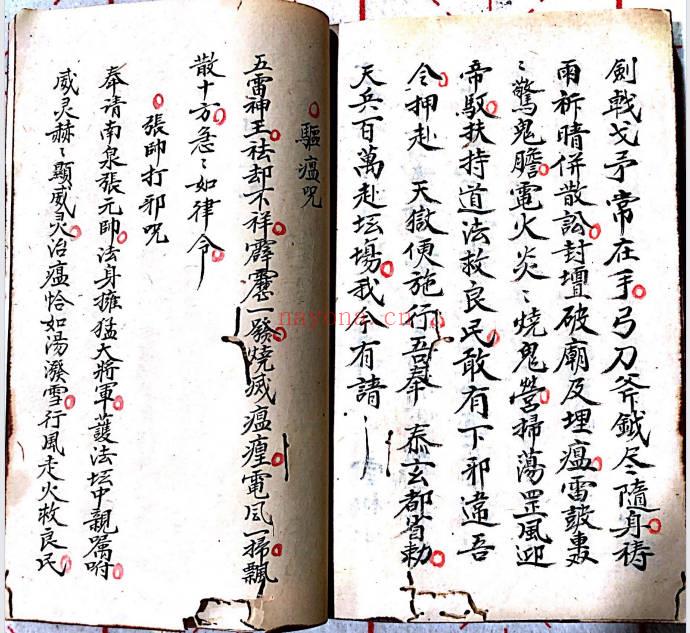 劍戟戈矛常在手弓刀斧鉞尽隨身祷
雨祈晴併散訟封壇破廟及埋瘟雷皷轰
〻驚鬼膽電火炎〻燒鬼營掃蕩罡風迎
帝馭扶持道法救良民敢有下邪違吾
令押赴 天獄便施行吾奉 泰玄都省勅
天兵百萬赴坛場我今有請
驅瘟咒
五雷神王祛却不祥霹靂一發燒滅瘟癀電風一掃飄
散十方急〻如律令
張帥打邪咒
奉请南泉張元帥法身擁猛大將軍護法坛中親嘱咐
威灵赫〻顯威灵治瘟恰如湯潑雪行風走火救良民
nayona.cn